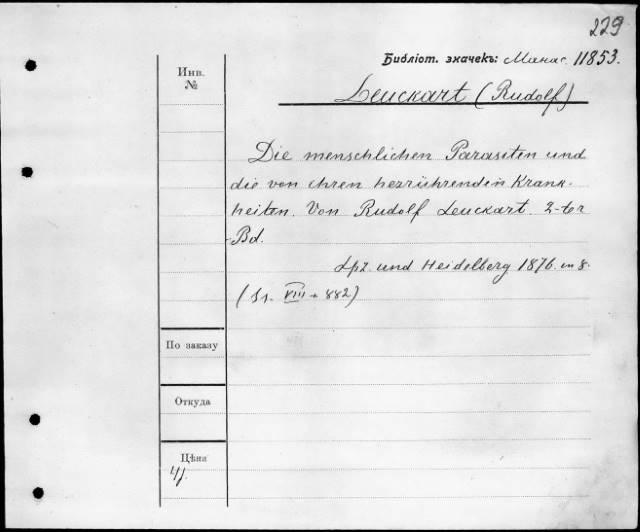 229
Библіот. значекъ: Манас. 11853.
Инв.
№
Leuckart (Rudolf)
Die menschlichen Parasiten und
die von ihren herrührenden Krank-
heiten. Von Rudolf Leuckart. 2-ter
Bd.
Lpz. und Heidelberg 1876. in 8.
(Ss. VIII + 882)
По заказу
Откуда
Цѣна